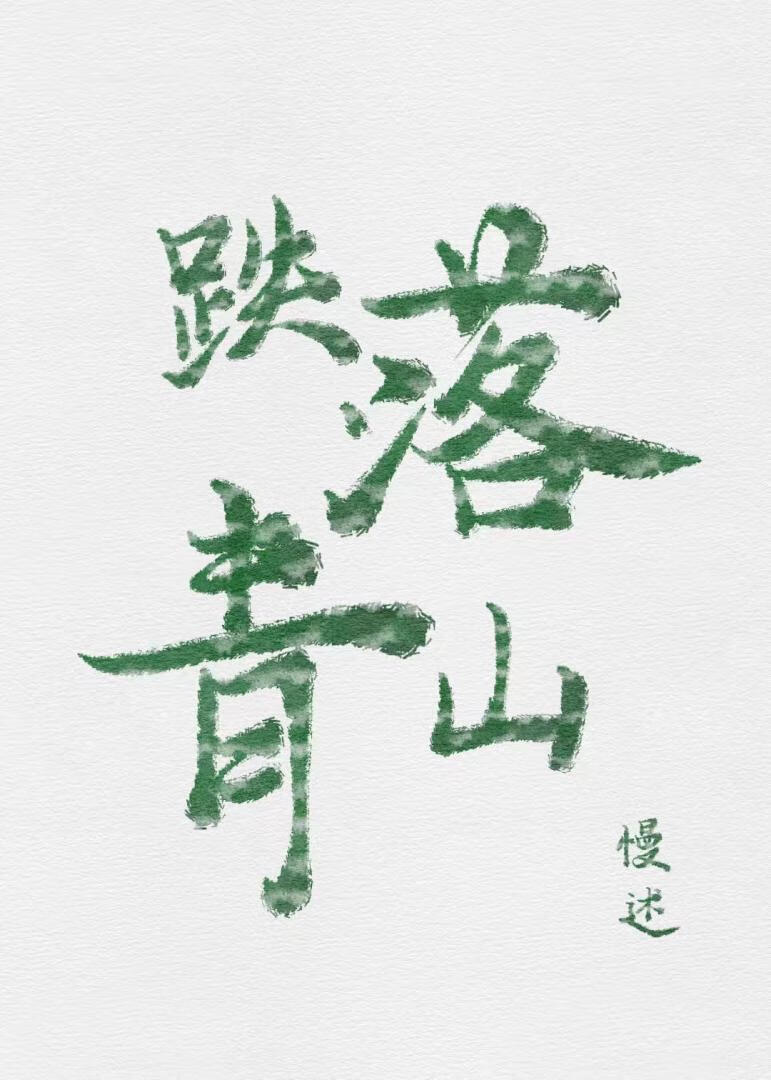 跌落
青山
慢述